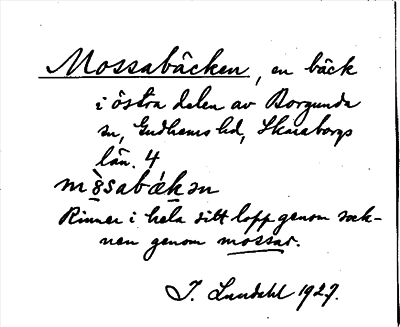 Mossabäcken, en bäck
i östra delen av Borgunda
sn, Gudhems hd, Skaraborgs
län. 4
mòsabǽkən
Rinner i hela sitt lopp genom sock-
nen genom mossar.
I. Lundahl 1927.